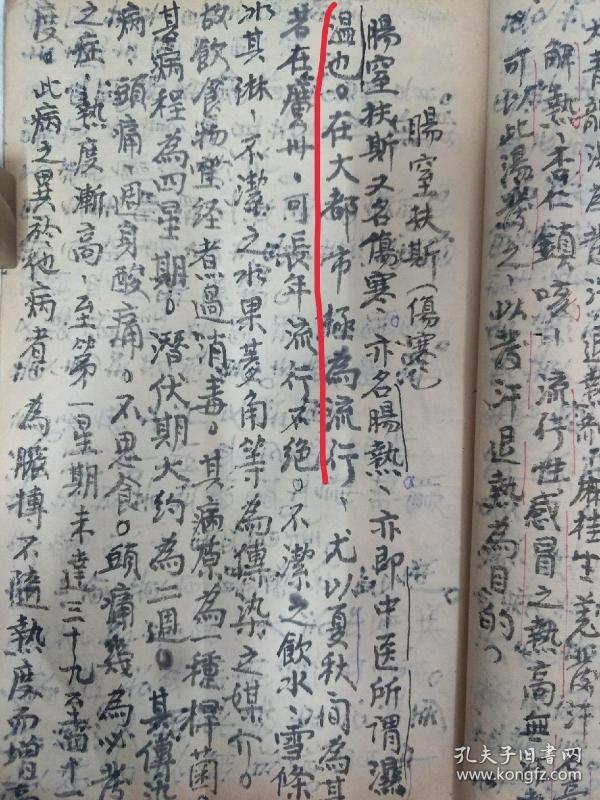 大青龍湯為發汗退熱而不麻桂生姜發汗
解熱、杏仁鎮咳、流行性感冒之熱高無
可以此湯發之、以發汗退熱為目的、
腸窒扶斯（傷寒）
腸窒扶斯又名傷寒、亦名腸熱、亦即中医所謂濕
温也。在大都市極為流行、尤以夏秋间為其
若在廣州、可長年流行不绝。不潔之飲水、雪條
冰其淋、不潔之水果菱角等為傳染之媒介。
故飲食物堅经煮過消毒。其病原為一種桿菌。
其病程為四星期。潛伏期大约為二週。其傳染
病、頭痛、週身酸痛。不思食。頭痛幾為必發
之症、熱度漸高、至第一星期末達三十九至四十一
度。此病之異於他病者為脈搏不隨熱度而增高
孔夫子旧书网
www.kongfz.com